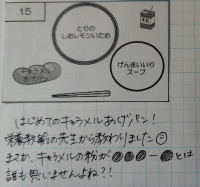 15
とりの
しおレモンいため
げんまいいり
スープ
キャラメル
あげパン
はじめてのキャラメルあげパン!
栄養教諭の先生から教わりました
まさか、キャラメルの粉が●●●ー●とは
誰も思いませんよね?!